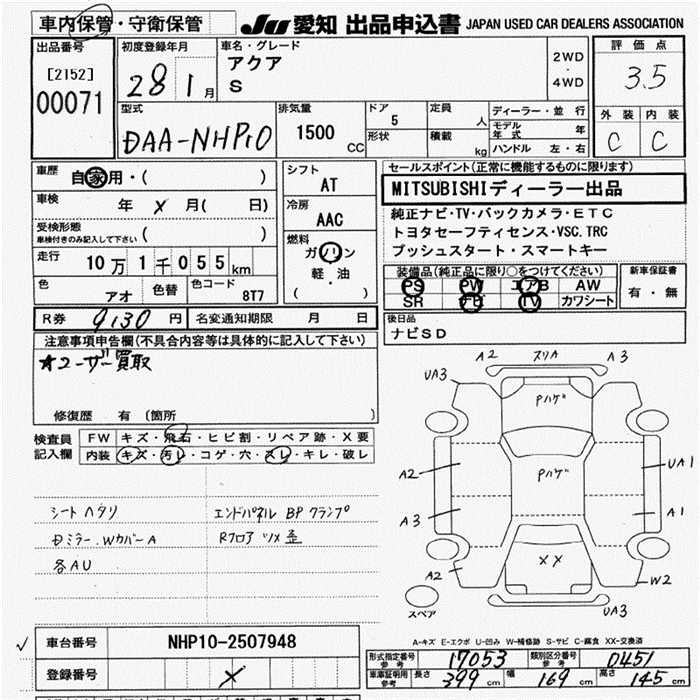 車内保管・守衛保管 JU 愛知 出品申込書 JAPAN USED CAR DEALERS ASSOCIATION
出品番号 [2152] 00071
初度登録年月 28 1月
車名・グレード アクア S
2WD・4WD
評価点 3.5
外装 C 内装 C
型式 DAA-NHP10
排気量 1500 CC
ドア 5 形状
定員 人 積載 kg
ディーラー・並行
モデル年式 年
ハンドル 左・右
車歴 自家用・( )
車検 年 × 月( 日)
受検形態 車検付きのみ記入して下さい ( )
走行 10万1千055km
色 アオ 色替 色コード 8T7
シフト AT
冷房 AAC
燃料 ガソリン 軽・油 ( )
セールスポイント(正常に機能するものに限ります)
MITSUBISHIディーラー出品
純正ナビ・TV・バックカメラ・ETC
トヨタセーフティセンス・VSC.TRC
プッシュスタート・スマートキー
装備品(純正品に限り○をつけてください)
PS PW エアB AW
SR ナビ TV カワシート
新車保証書 有・無
R券 9,130円 名変通知期限 月 日
後日品
ナビSD
注意事項申告欄(不具合内容等は具体的に記入して下さい)
★ユーザー買取
修復歴 有 (箇所 )
検査員記入欄 FW キズ・飛石・ヒビ割・リペア跡・X要
内装 キズ・汚レ・コゲ・穴・スレ・キレ・破レ
シートヘタリ
Dミラー.WカバーA
各AU
エンドパネル BPクランプ
Rフロア ツメ歪
A2 スリA A3
UA3
Pハゲ
A2 Pハゲ UA1
A3 A1
A2 XX W2
スペア UA3
A-キズ E-エクボ U-凹み W-補修跡 S-サビ C-腐食 XX-交換済
✓ 車台番号 NHP10-2507948
登録番号 ×
形式指定番号 参考 17053 類別区分番号 参考 0451
車庫証明用 参考 長さ 399cm 幅 169cm 高さ 145cm